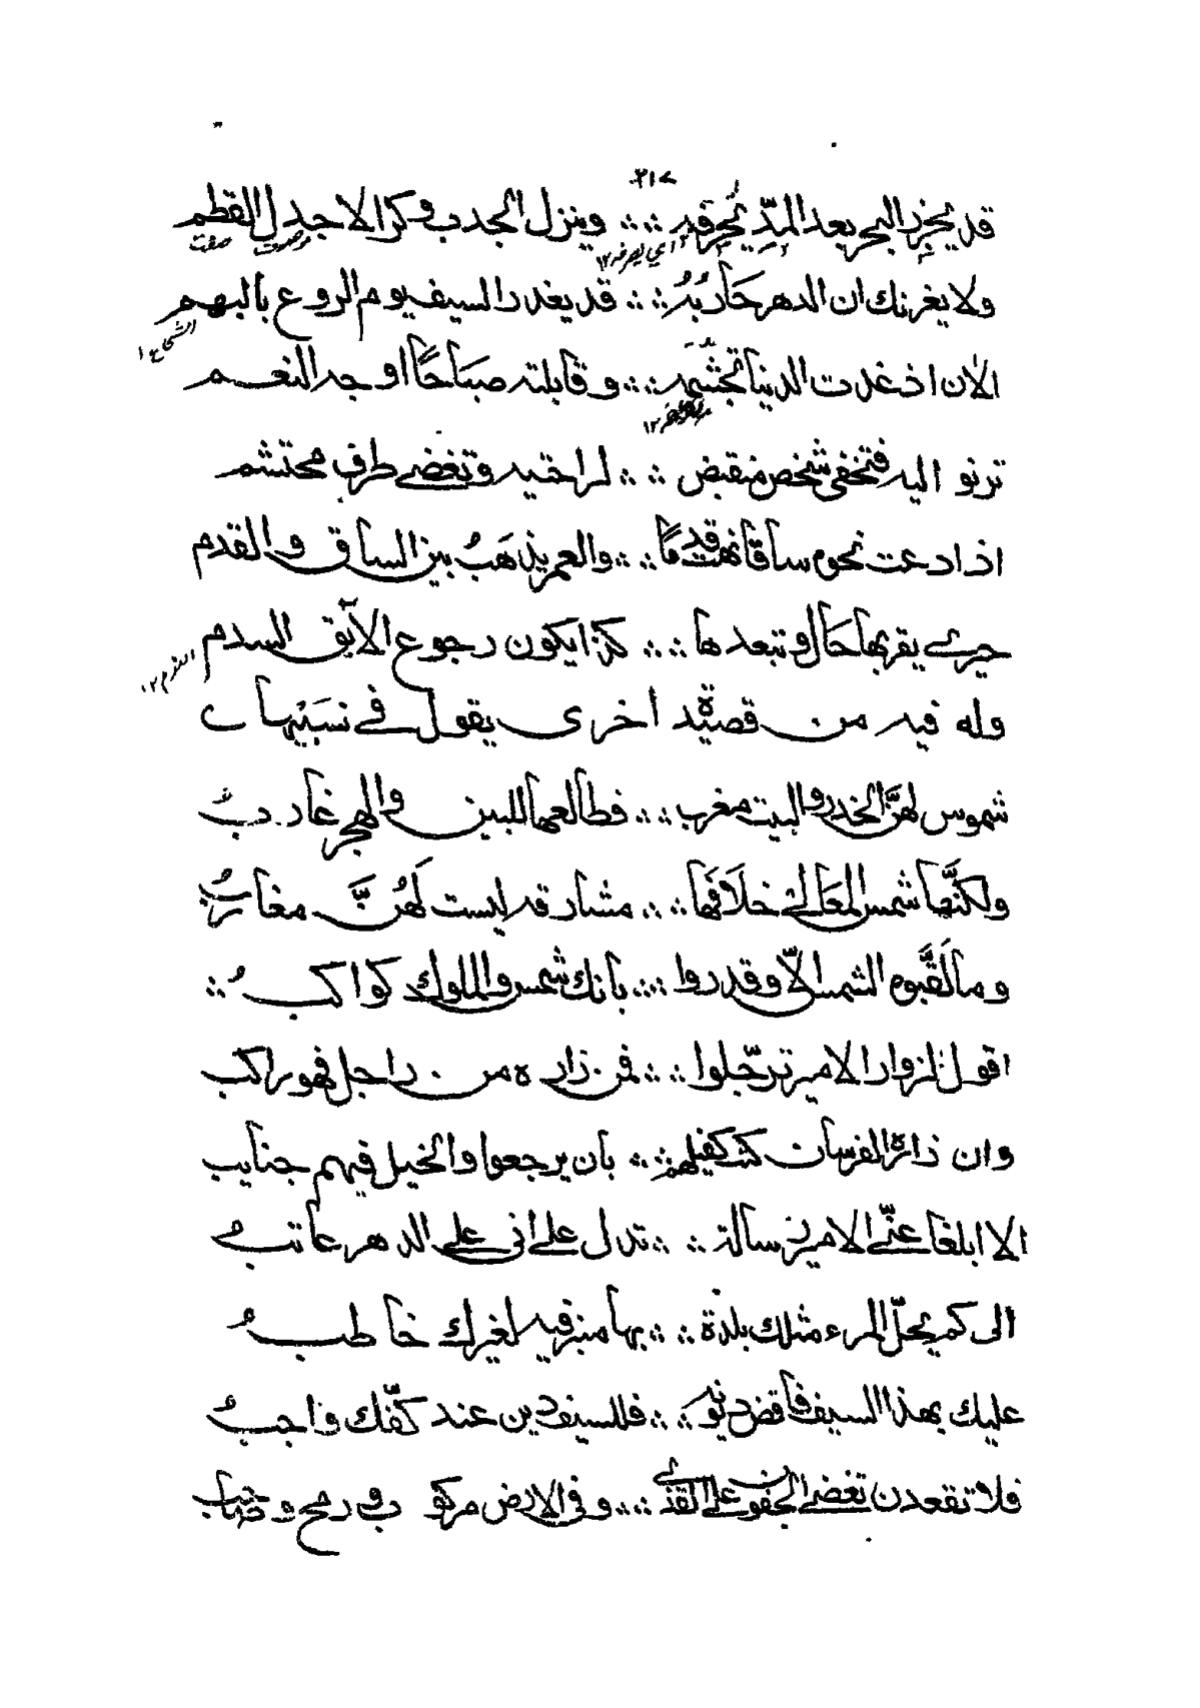 ٢١٧
قد يجزر البحر بعد المدّ يجرقه ∴ وينزل الجدب وكر الاجدل القطم
موصوف صفت
ولا يغرنك ان الدهر حاربُهُ ∴ قد يغدر السيف يوم الروع بالبهم
الشجاع ١
الان اذ غدت الدنيا تجشّمه ∴ وقابلته صباحًا اوجه النعم
ترنو اليه فتخفى شخص منقبض ∴ لراحتيه وتغضى طرف محتشم
اذا دعت نحوه ساقا نهت قدمًا ∴ والعمر يذهَبُ بين الساق والقدم
حيرى يقربها حَال وتبعدها ∴ كذا يكون رجوع الآبق السدم
وله فيه من قصيدة اخرى يقول فى نسيبها
شموس لهنَّ الخدر والبيت مغرب ∴ فطالعها للبين والهجر غاربُ
ولكنَّها شمس المعَالى خلافَها ∴ مشارقه ليست لَهُنَّ مغاربُ
وما لَقَّبوه الشمس الّا وقد روا ∴ بانك شمس والملوك كواكبُ ∴
اقول لزوار الامير ترجّلوا ∴ فمن زاره من راجل فهو راكب
وان زاره الفرسان كنت كفيلهم ∴ بان يرجعوا والخيل فيهم جنايب
الا ابلغا عنّى الامير رسالة ∴ تدل على انى على الدهر عاتبُ
الى كم يحلّ المرء مثلك بلدة ∴ بها منبر فيه لغيرك خاطبُ
عليك بهذا السيف فاقض ديونه ∴ فللسيف دين عند كفّك واجبُ
فلا تقعدن تغضى الجفون على القذى ∴ وفى الارض مركوب ورمح وصاحب